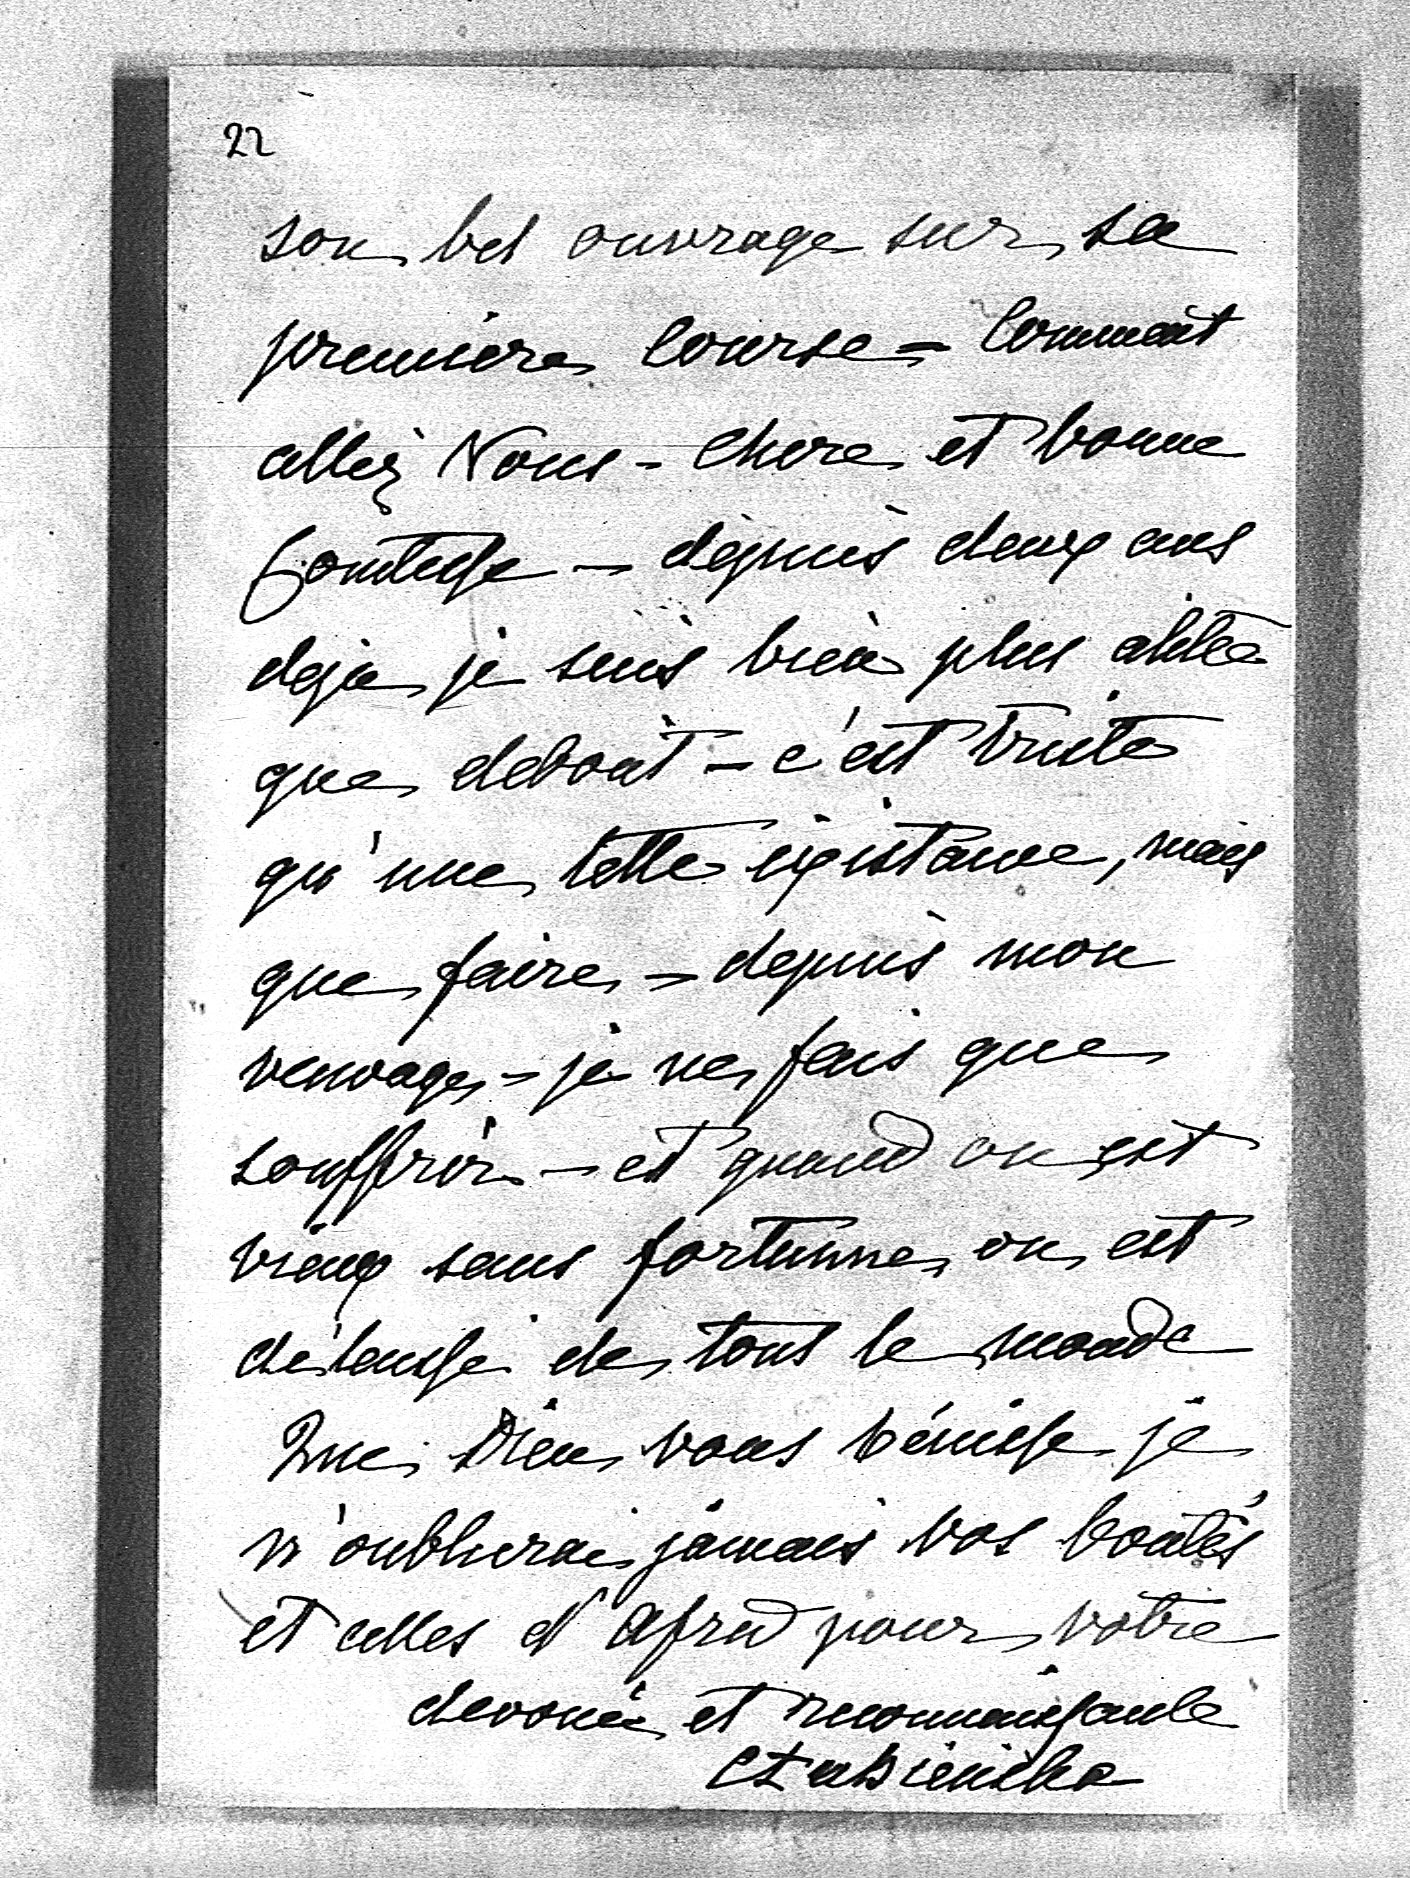 22
son bel ouvrage sur sa
premiere course – Comment
allez Vous – Chere et bonne
Comtesse – depuis deux ans
deja je suis bien plus alitée
que debout – c'est triste
qu'une telle existance, mais
que faire – depuis mon
veuvage – je ne fais que
souffrir – et quand on est
vieux sans fortunne on est
délaissé de tout le monde
Que Dieu vous bénisse je
n'oublierai jamais vos bontés
et celles d'Alfred pour votre
devouée et reconnaissante